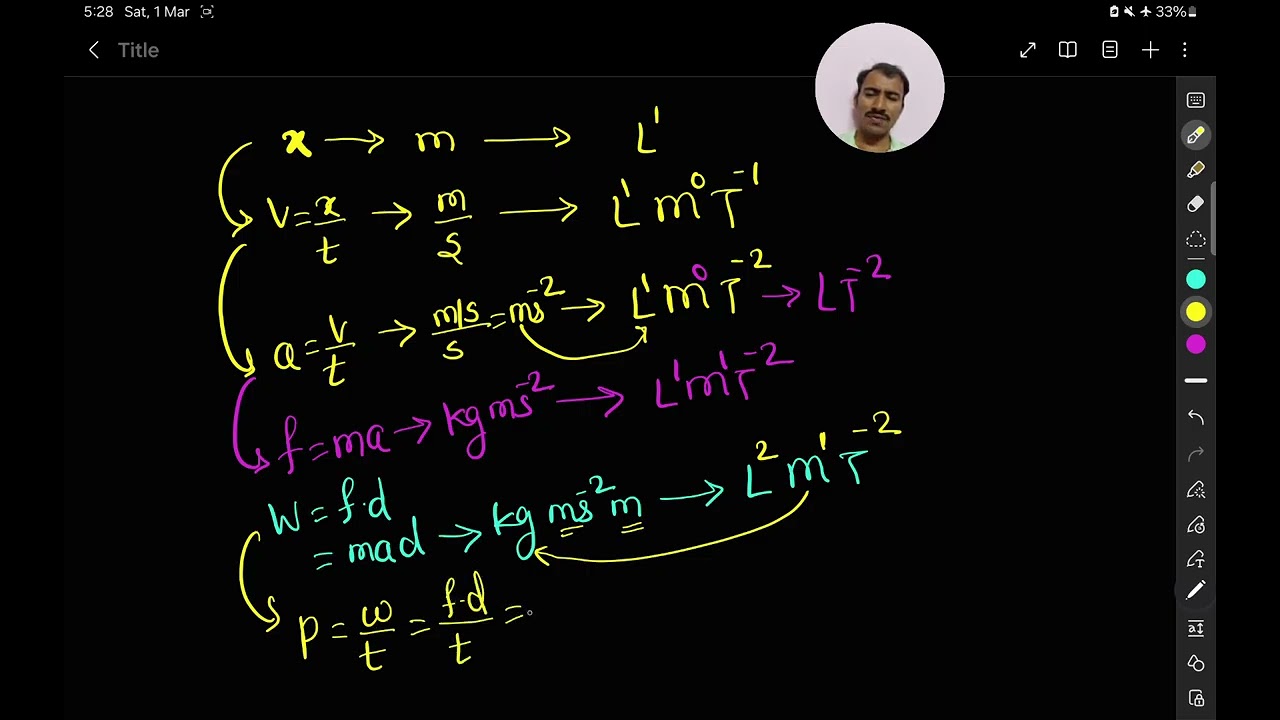 5:28 Sat, 1 Mar 33%
Title
x → m → L¹
V = x/t → m/s → L¹ m⁰ T⁻¹
a = v/t → m/s/s = ms⁻² → L¹ m⁰ T⁻² → LT⁻²
f = ma → kg ms⁻² → L¹ m¹ T⁻²
W = f·d
= mad → kg ms⁻² m → L² m¹ T⁻²
P = w/t = f·d/t =